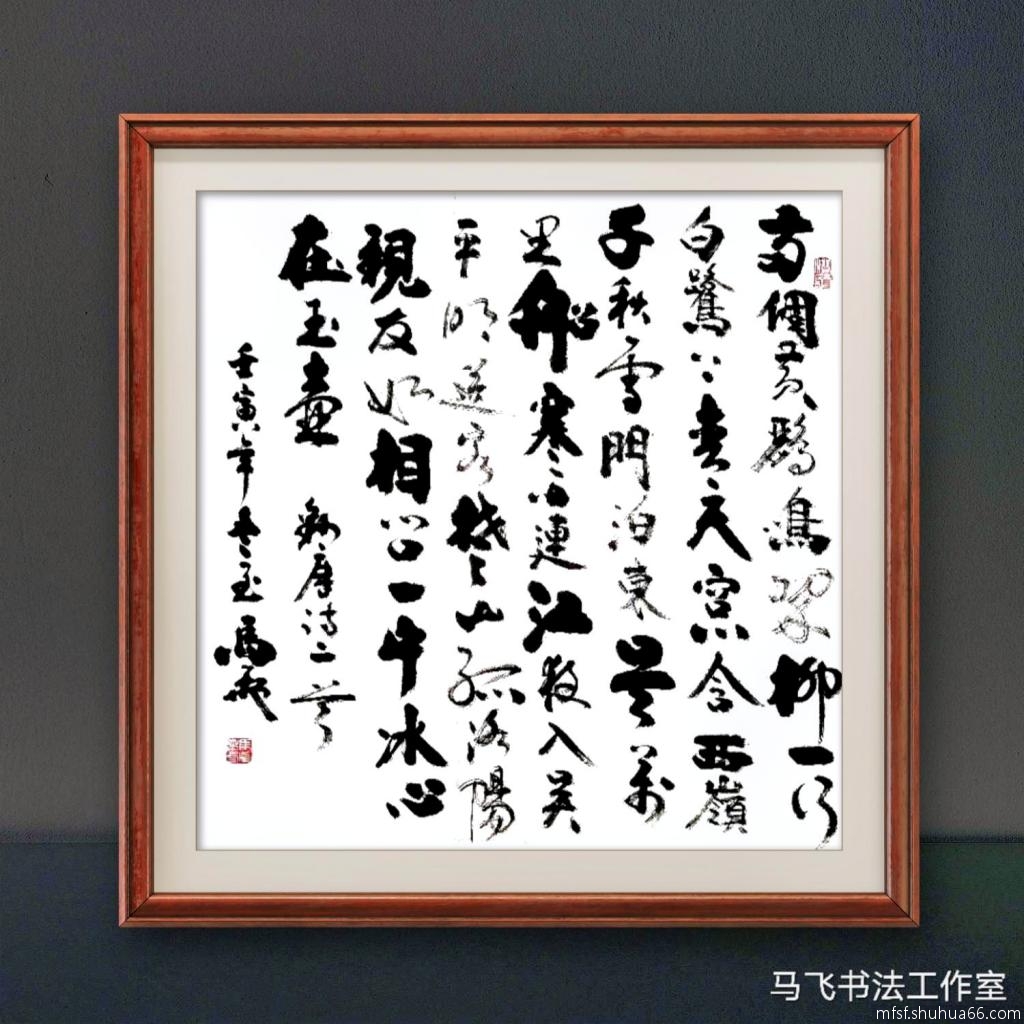 两個黄鸝鳴翠柳一行
白鷺上青天窗含西嶺
千秋雪門泊東吴萬
里船寒雨連江夜入吴
平明送客楚山孤洛陽
親友如相问一片冰心
在玉壶 錄唐诗二首
壬寅年冬至馬飛
马飞书法工作室
mfsf.shuhua66.com